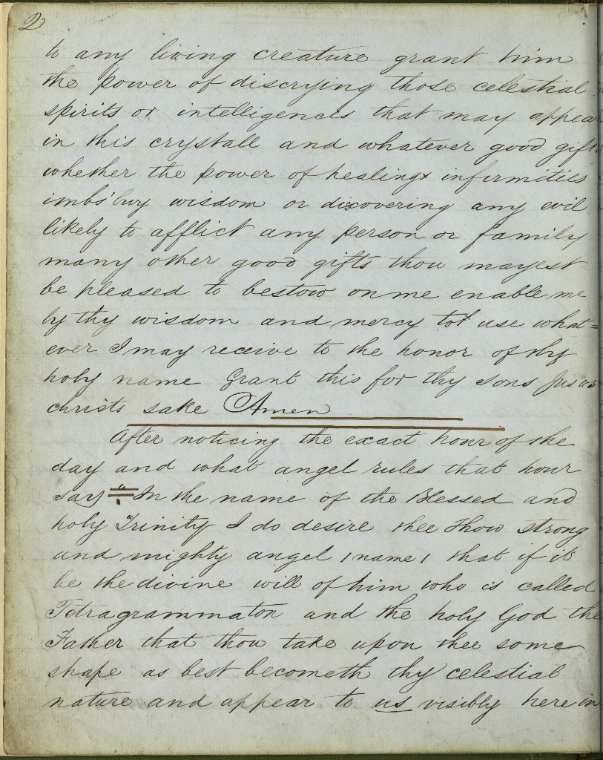 2
to any living creature grant him
the power of discrying those celestial
spirits or intelligences that may appear
in this crystall and whatever good gifts
whether the power of healing infirmities
imbs'buy wisdom or discovering any evil
likely to afflict any person or family
many other good gifts thou mayest
be pleased to bestow on me enable me
by thy wisdom and mercy to use what=
ever I may receive to the honor of thy
holy name Grant this for thy sons Jesus
christs sake Amen
After noticing the exact hour of the
day and what angel rules that hour
say In the name of the Blessed and
holy Trinity I do desire thee thow strong
and mighty angel (name) that if it
be the divine will of him who is called
Tetragrammaton and the holy God the
Father that thou take upon thee some
shape as best becometh thy celestial
nature and appear to us visibly here in